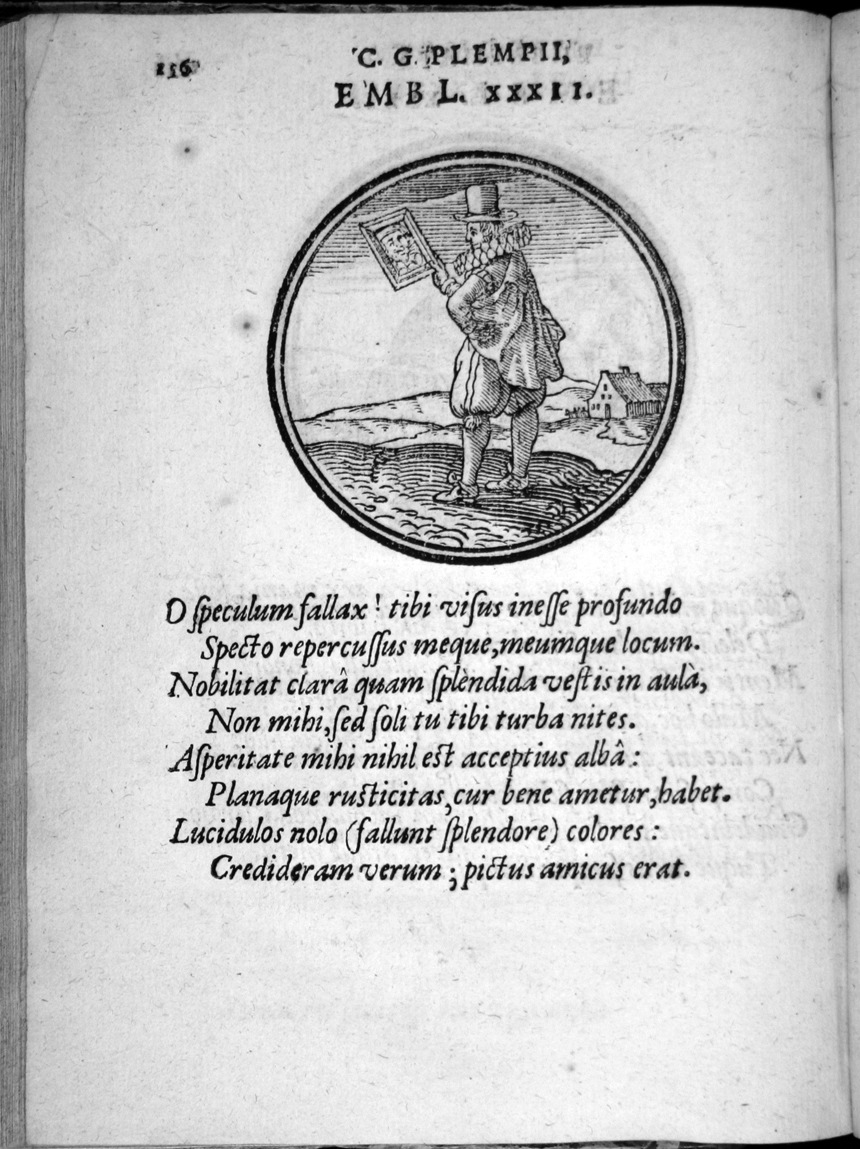 156
C. G. PLEMPII,
EMBL. XXXII.
O ſpeculum fallax! tibi viſus ineſſe profundo
Specto repercuſſus meque, meumque locum.
Nobilitat clarâ quam ſplèndida veſtis in aulà,
Non mihi, ſed ſoli tu tibi turba nites.
Aſperitate mihi nihil est acceptius albâ:
Planaque ruſticitas, cur bene ametur, habet.
Lucidulos nolo (fallunt ſplendore) colores:
Credideram verum; pictus amicus erat.